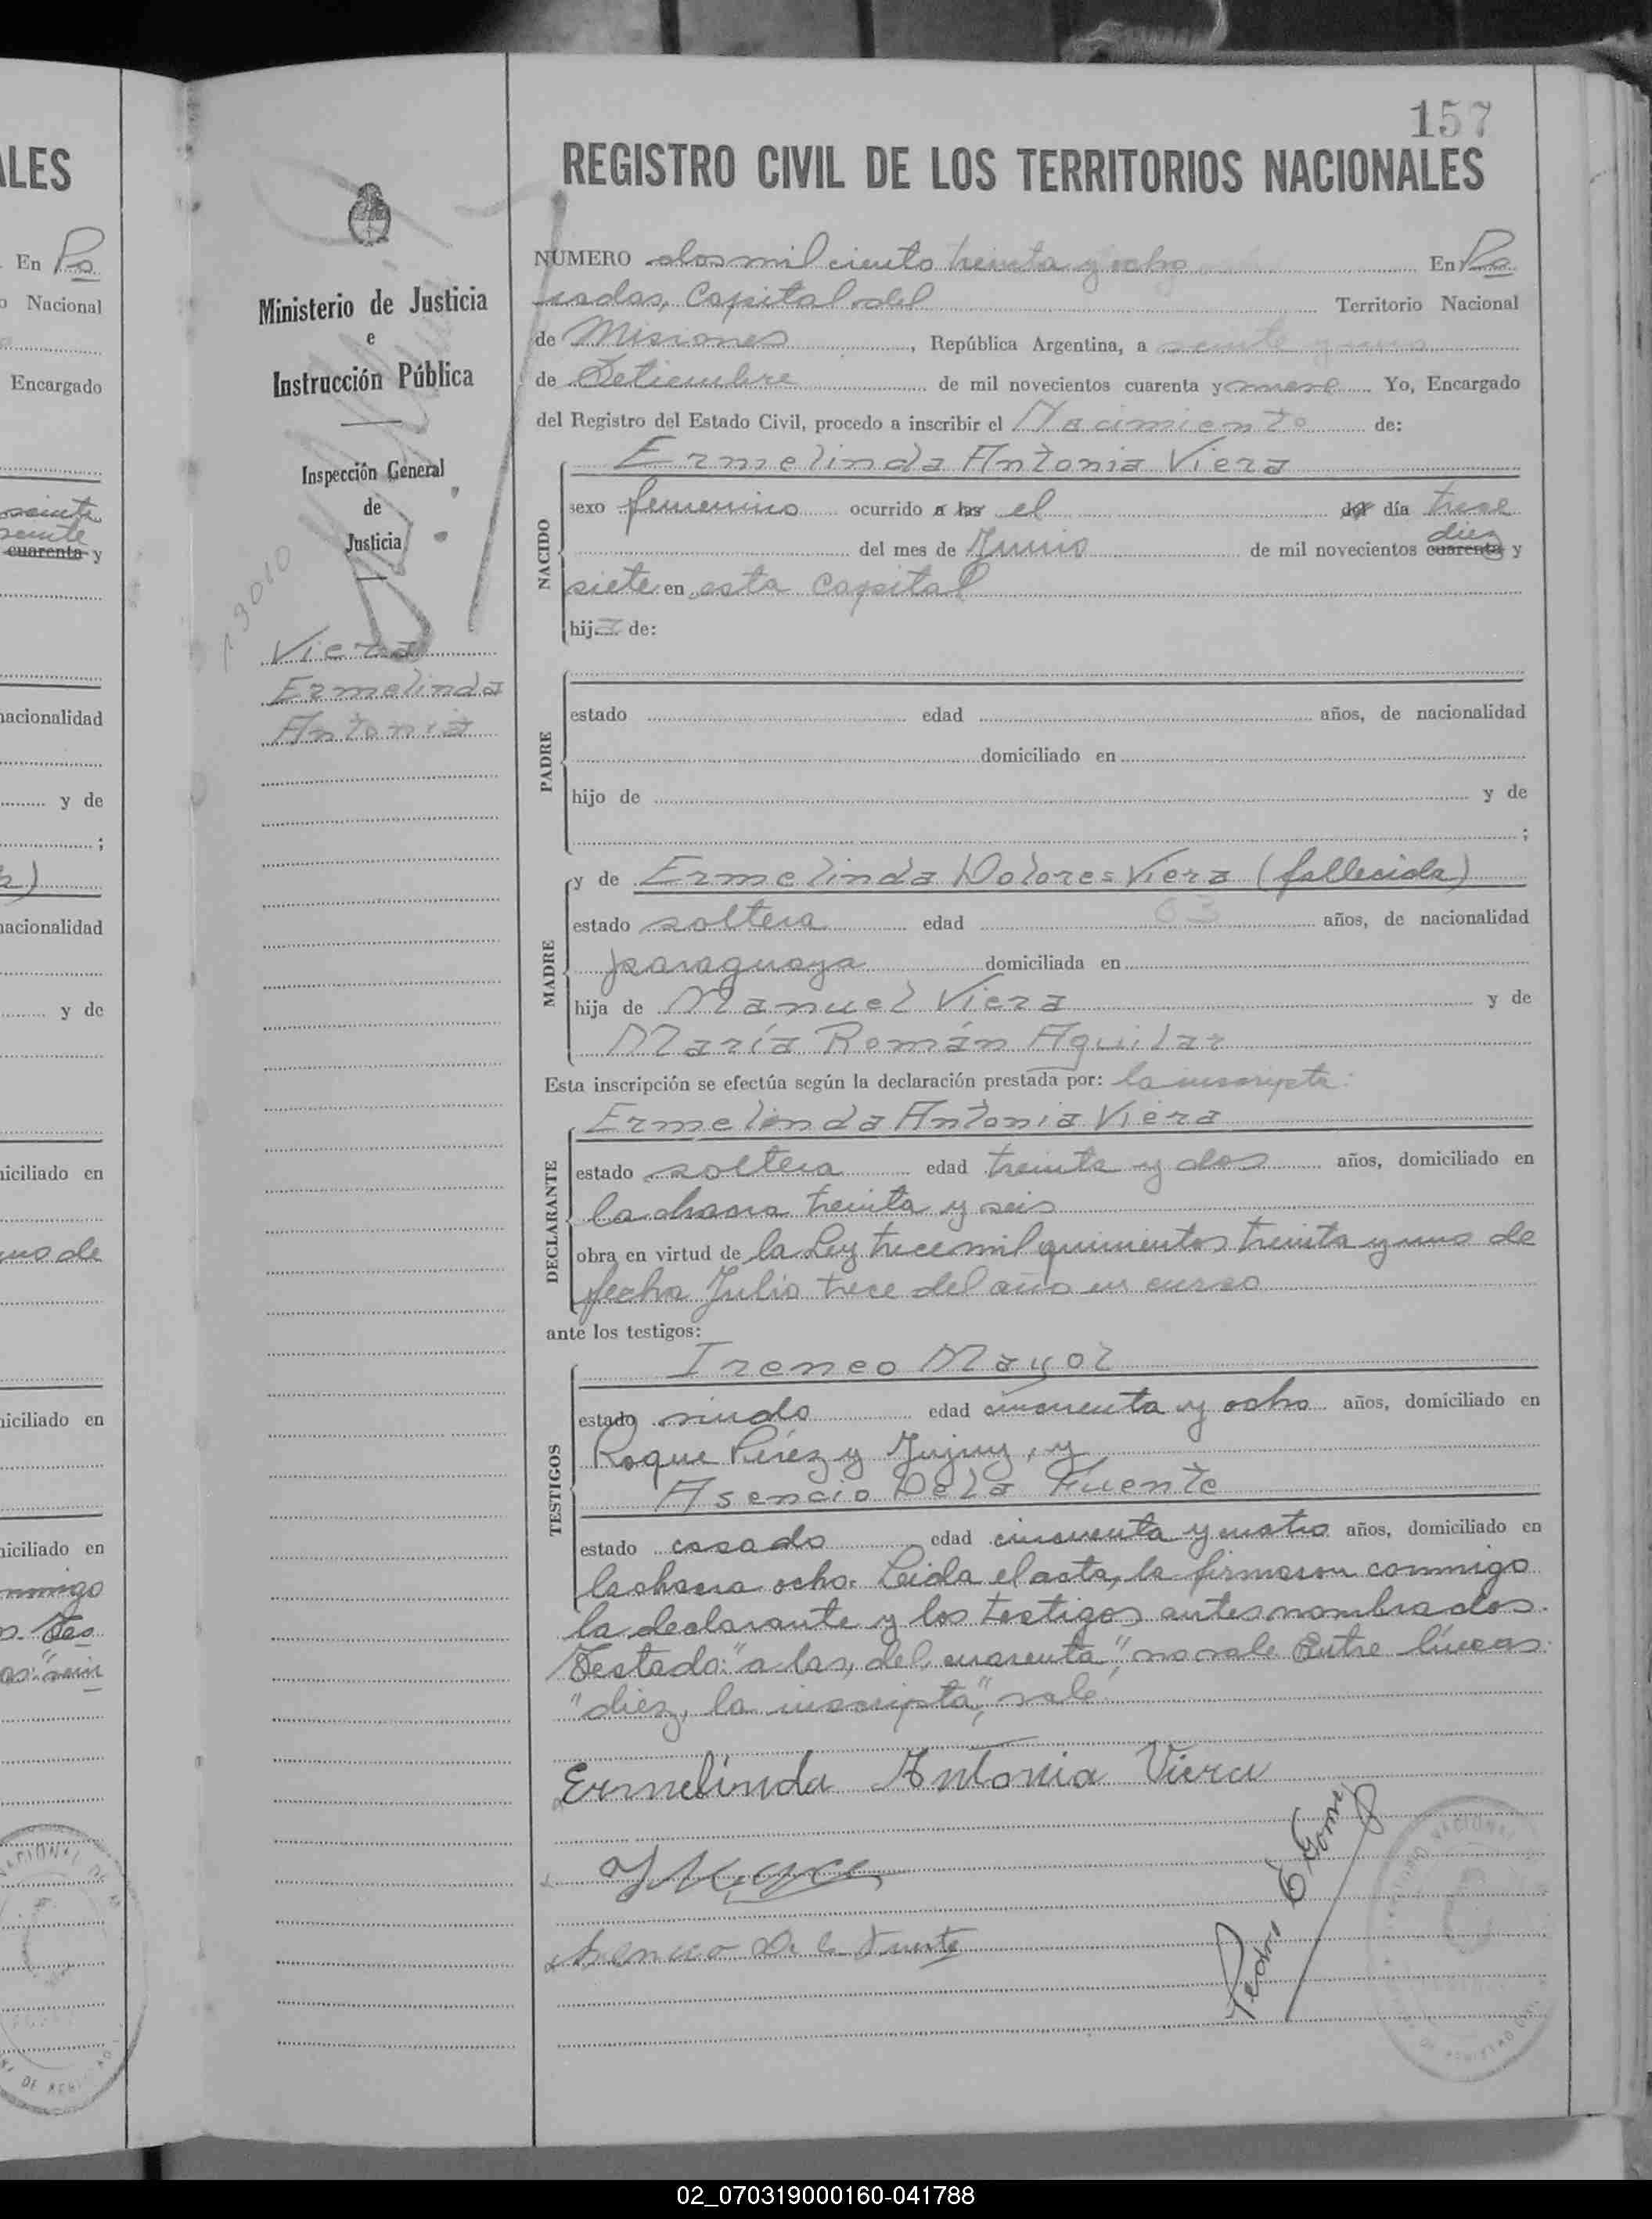 157
REGISTRO CIVIL DE LOS TERRITORIOS NACIONALES
NUMERO dos mil ciento treinta y ocho En Po
sadas, Capital del Territorio Nacional
de Misiones, República Argentina, a veinte y uno
de Setiembre de mil novecientos cuarenta y nueve Yo, Encargado
del Registro del Estado Civil, procedo a inscribir el Nacimiento de:
Ermelinda Antonia Viera
NACIDO
sexo femenino ocurrido a las el del día trece
diez
del mes de Junio de mil novecientos cuarenta y
siete en esta Capital
hija de:
PADRE
estado edad años, de nacionalidad
domiciliado en
hijo de y de
;
MADRE
y de Ermelinda Dolores Viera (fallecida)
estado soltera edad 63 años, de nacionalidad
paraguaya domiciliada en
hija de Manuel Viera y de
María Román Aguilar
Esta inscripción se efectúa según la declaración prestada por: la inscripta:
Ermelinda Antonia Viera
DECLARANTE
estado soltera edad treinta y dos años, domiciliado en
la chacra treinta y seis
obra en virtud de la Ley trece mil quinientos treinta y uno de
fecha Julio trece del año en curso
ante los testigos:
Ireneo Mayol
TESTIGOS
estado viudo edad cincuenta y ocho años, domiciliado en
Roque Pérez y Jujuy, y
Asencio De La Fuente
estado casado edad cincuenta y cuatro años, domiciliado en
la chacra ocho. Leida el acta, la firmaron conmigo
la declarante y los testigos antes nombrados.
Testado: "a las, del, cuarenta", no vale Entre líneas:
"diez, la inscripta", vale
Ermelinda Antonia Viera
Asencio De la Fuente
Pedro E. Gomez
Ministerio de Justicia
e
Instrucción Pública
Inspección General
de
Justicia
Viera
Ermelinda
Antonia
ALES
En Po
o Nacional
Encargado
veinte
cuarenta y
nacionalidad
y de
;
nacionalidad
y de
iciliado en
uno de
iciliado en
iciliado en
nmigo
02_070319000160-041788